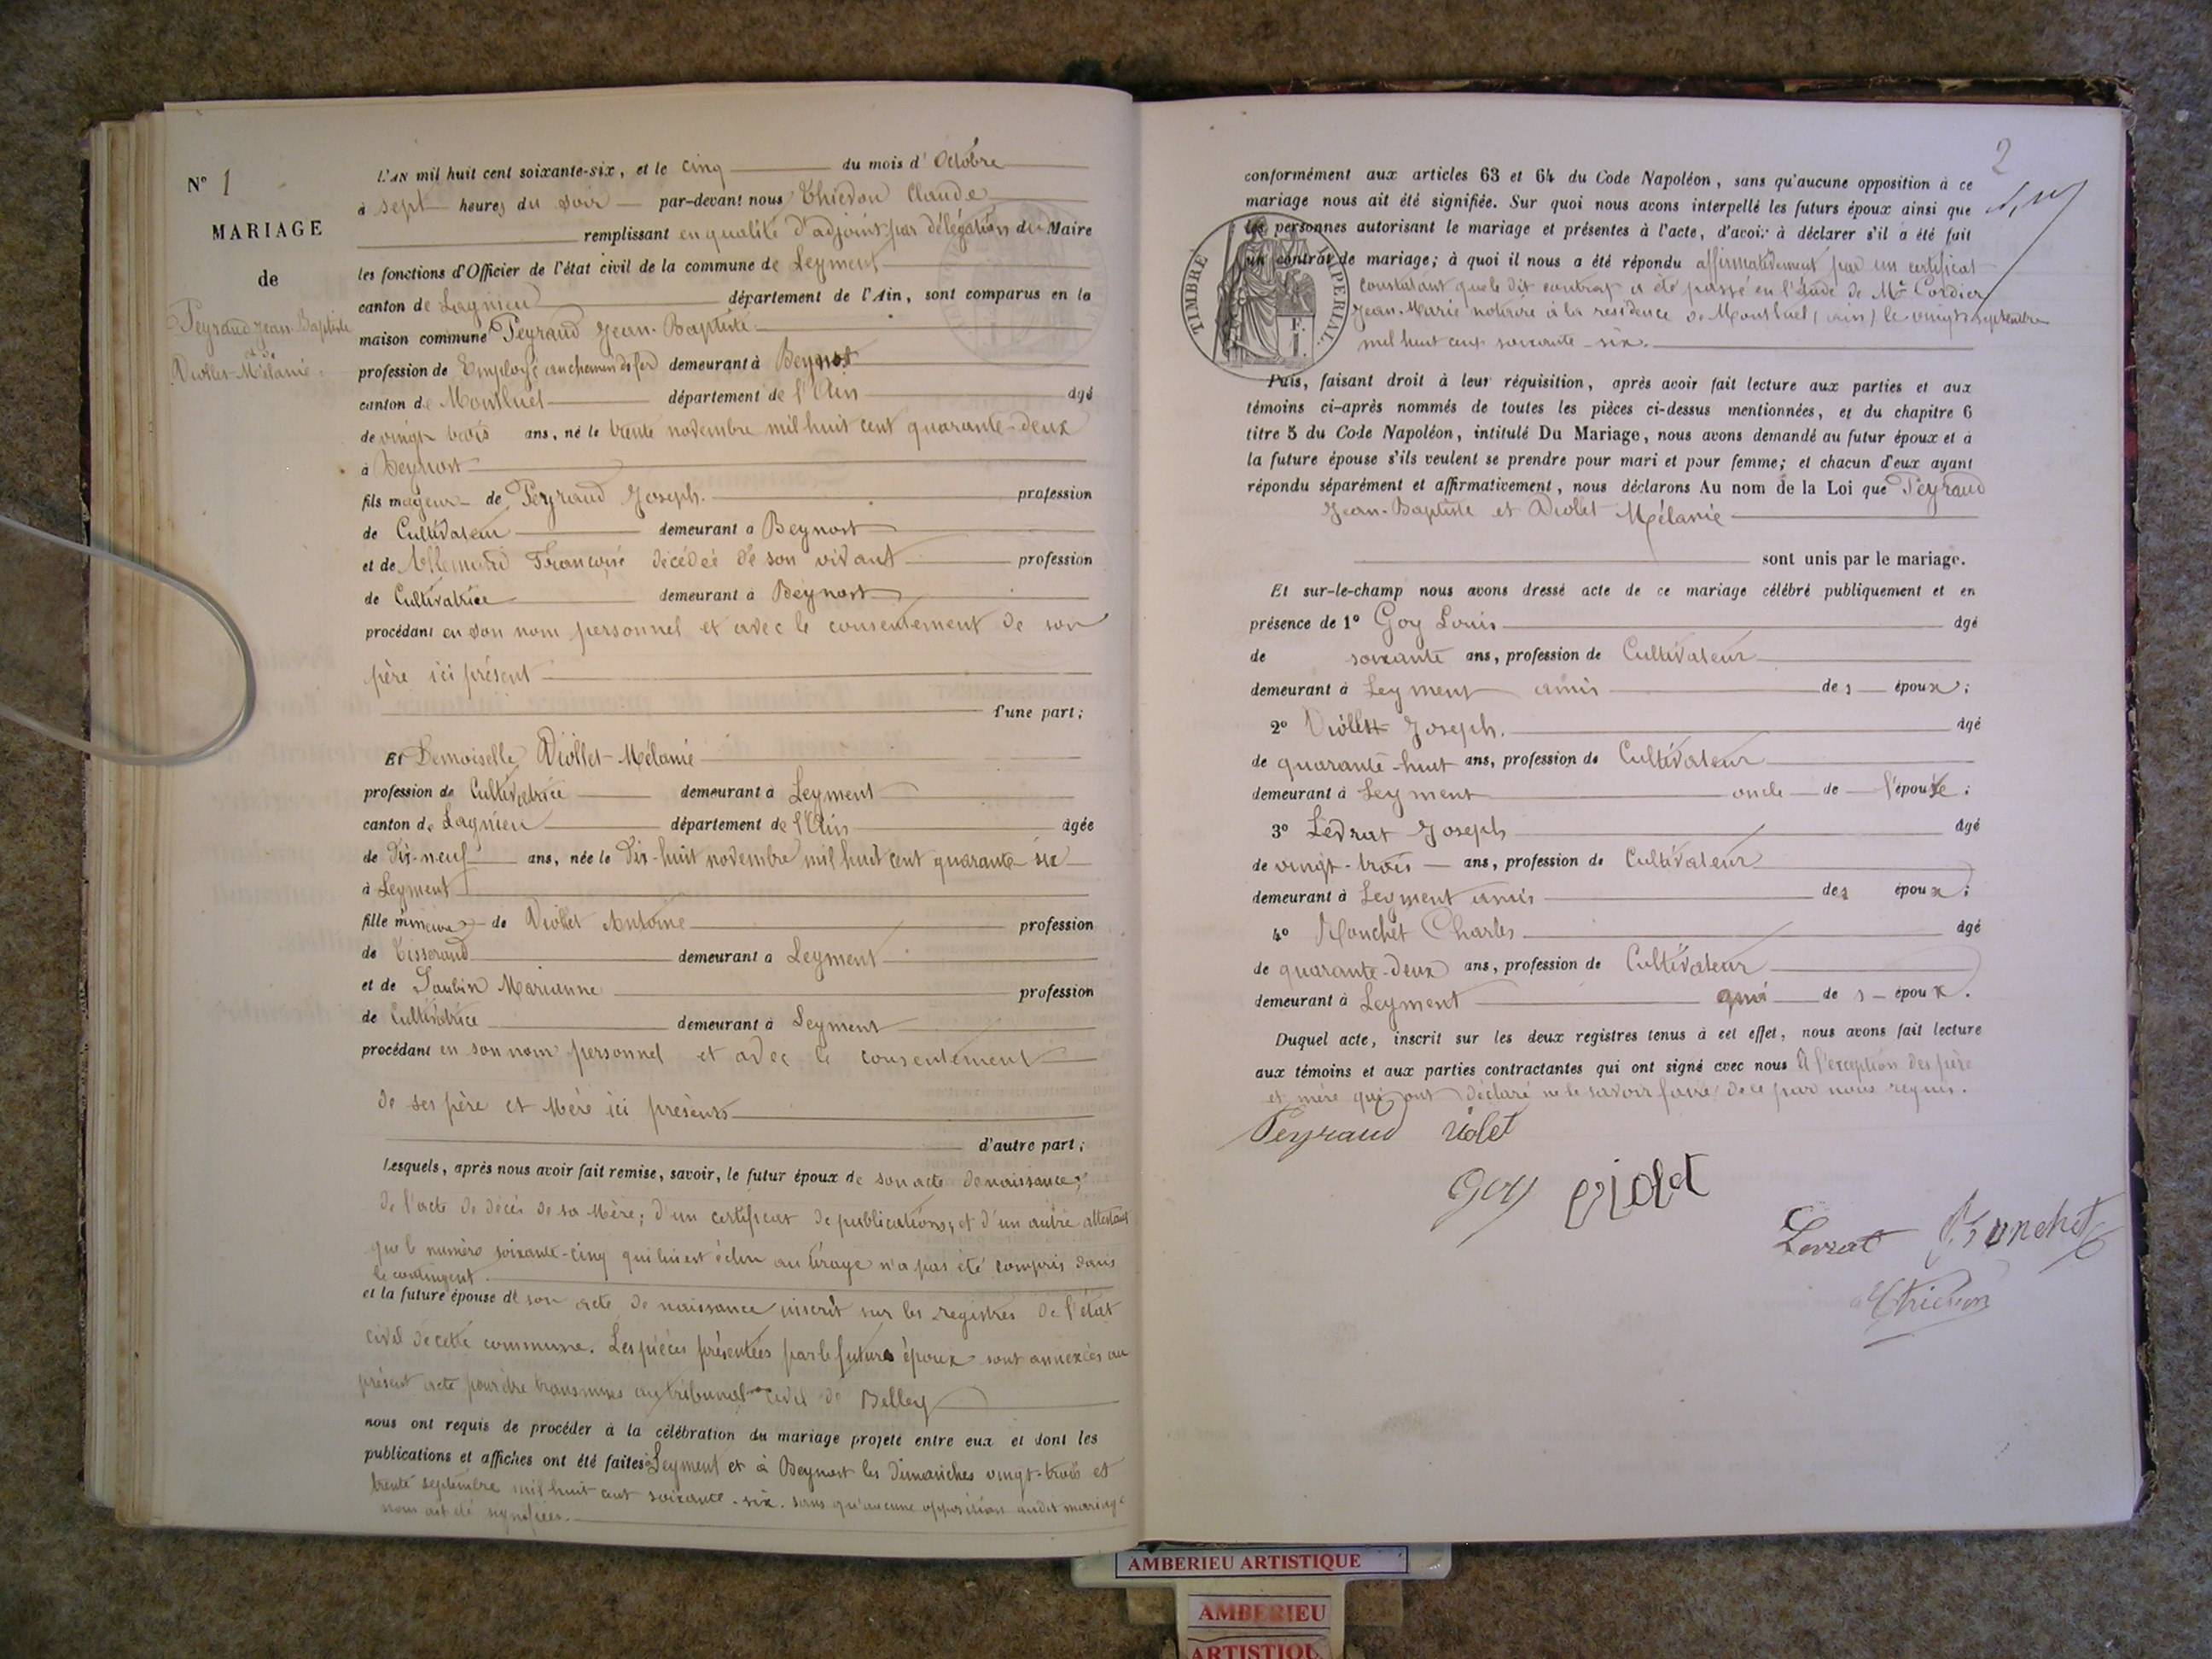 N° 1
MARIAGE
de
Peyraud Jean-Baptiste
et de
Viollet Mélanie
L'AN mil huit cent soixante-six, et le cinq du mois d'Octobre
à sept heures du soir par-devant nous Thievon Claude
remplissant en qualité d'adjoint par délégation du Maire
les fonctions d'Officier de l'état civil de la commune de Leyment
canton de Lagnieu département de l'Ain, sont comparus en la
maison commune Peyraud Jean-Baptiste
profession de Employé au chemin de fer demeurant à Beynost
canton de Montluel département de l'Ain âgé
de vingt trois ans, né le trente novembre mil huit cent quarante-deux
à Beynost
fils majeur de Peyraud Joseph. profession
de Cultivateur demeurant à Beynost
et de Allemand Françoise décédée de son vivant profession
de Cultivatrice demeurant à Beynost
procédant en son nom personnel et avec le consentement de son
père ici présent
d'une part;
Et Demoiselle Viollet Mélanie
profession de Cultivatrice demeurant à Leyment
canton de Lagnieu département de l'Ain âgée
de Dix-neuf ans, née le Dix-huit novembre mil huit cent quarante six
à Leyment
fille mineure de Viollet Antoine profession
de Tisserand demeurant à Leyment
et de Saubin Marianne profession
de Cultivatrice demeurant à Leyment
procédant en son nom personnel et avec le consentement
de ses père et Mère ici présents
d'autre part;
Lesquels, après nous avoir fait remise, savoir, le futur époux de son acte de naissance;
de l'acte de décès de sa Mère; d'un certificat de publications; et d'un autre attestant
que le numéro soixante-cinq qui lui est échu au tirage n'a pas été compris dans
le contingent.
et la future épouse de son acte de naissance inscrit sur les registres de l'état
civil de cette commune. Les pièces présentées par le futurs époux sont annexées au
présent acte pour être transmises au tribunal civil de Belley
nous ont requis de procéder à la célébration du mariage projeté entre eux et dont les
publications et affiches ont été faites à Leyment et à Beynost les Dimanches vingt-trois et
trente septembre mil huit cent soixante-six. sans qu'aucune opposition audit mariage
nous ait été signifiée.
2
conformément aux articles 63 et 64 du Code Napoléon, sans qu'aucune opposition à ce
mariage nous ait été signifiée. Sur quoi nous avons interpellé les futurs époux ainsi que
les personnes autorisant le mariage et présentes à l'acte, d'avoir à déclarer s'il a été fait
un contrat de mariage; à quoi il nous a été répondu affirmativement par un certificat
constatant que le dit contrat a été passé en l'étude de Me Cordier
Jean-Marie notaire à la résidence de Montluel (ain) le vingt septembre
mil huit cent soixante-six.
TIMBRE IMPERIAL
F.
1.
Puis, faisant droit à leur réquisition, après avoir fait lecture aux parties et aux
témoins ci-après nommés de toutes les pièces ci-dessus mentionnées, et du chapitre 6
titre 5 du Code Napoléon, intitulé Du Mariage, nous avons demandé au futur époux et à
la future épouse s'ils veulent se prendre pour mari et pour femme; et chacun d'eux ayant
répondu séparément et affirmativement, nous déclarons Au nom de la Loi que Peyraud
Jean-Baptiste et Violet Mélanie
sont unis par le mariage.
Et sur-le-champ nous avons dressé acte de ce mariage célébré publiquement et en
présence de 1° Goy Louis âgé
de soixante ans, profession de Cultivateur
demeurant à Leyment amis des époux;
2° Viollet Joseph. âgé
de quarante-huit ans, profession de Cultivateur
demeurant à Leyment oncle de l'épouse;
3° Levrat Joseph âgé
de vingt-trois ans, profession de Cultivateur
demeurant à Leyment amis des époux;
4° Ronchet Charles âgé
de quarante-deux ans, profession de Cultivateur
demeurant à Leyment ami des époux.
Duquel acte, inscrit sur les deux registres tenus à cet effet, nous avons fait lecture
aux témoins et aux parties contractantes qui ont signé avec nous à l'exception des père
et mère qui ont déclaré ne le savoir faire de ce par nous requis.
Peyraud violet
goy violet
Levrat Ronchet
Thievon
AMBERIEU ARTISTIQUE
AMBERIEU
ARTISTIQU